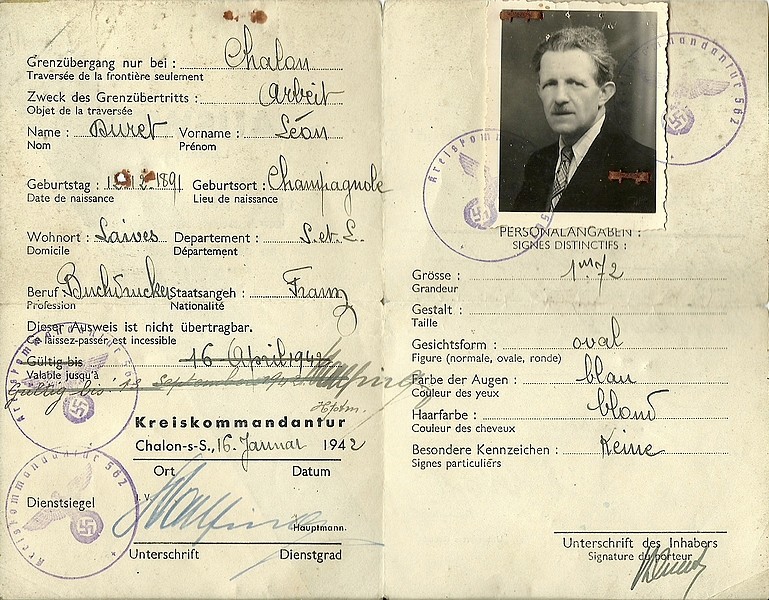 Grenzübergang nur bei : Chalon
Traversée de la frontière seulement
Zweck des Grenzübertritts : Arbeit
Objet de la traversée
Name : Buret Vorname : Léon
Nom Prénom
Geburtstag : 12.1891 Geburtsort : Champagnole
Date de naissance Lieu de naissance
Wohnort : Laives Departement : S. et. L.
Domicile Département
Beruf : Buchdrucker Staatsangeh : Franz
Profession Nationalité
Dieser Ausweis ist nicht übertragbar.
Ce laissez-passer est incessible
Gültig bis 16 April 1942
Valable jusqu'à
Gültig bis 19 September 1942
Hptm.
Kreiskommandantur
Chalon-s-S., 16. Januar 1942
Ort Datum
Dienstsiegel
I. V.
Hauptmann.
Unterschrift Dienstgrad
Kreiskommandantur 562
Kreiskommandantur 562
Kreiskommandantur 562
PERSONALANGABEN :
SIGNES DISTINCTIFS :
Grösse : 1m72
Grandeur
Gestalt :
Taille
Gesichtsform : oval
Figure (normale, ovale, ronde)
Farbe der Augen : blau
Couleur des yeux
Haarfarbe : blond
Couleur des cheveux
Besondere Kennzeichen : Keine
Signes particuliérs
Unterschrift des Inhabers
Signature du porteur